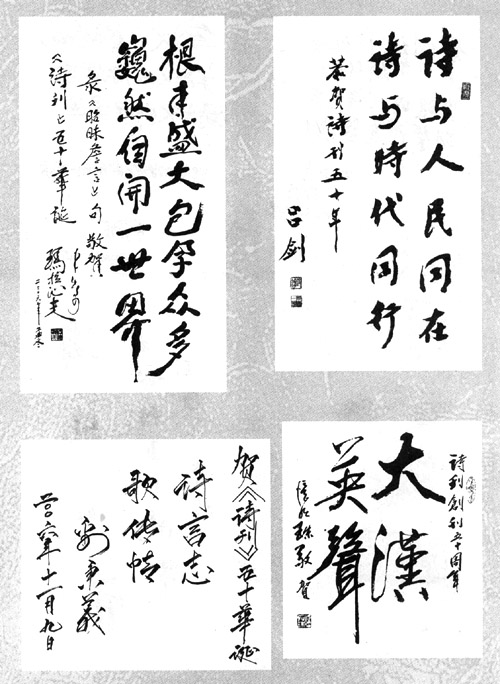 诗与人民同在
诗与時代同行
恭贺诗刊五十年
吕剑
根本盛大包孕众多
巍然自開一世界
录《昭昧詹言》句 敬贺
《诗刊》五十華诞
瑪拉沁夫
诗刊創刊五十周年
大漢
英聲
敬賀
贺《诗刊》五十華诞
诗言志
歌传情
刘秉義
二〇〇六年十一月九日